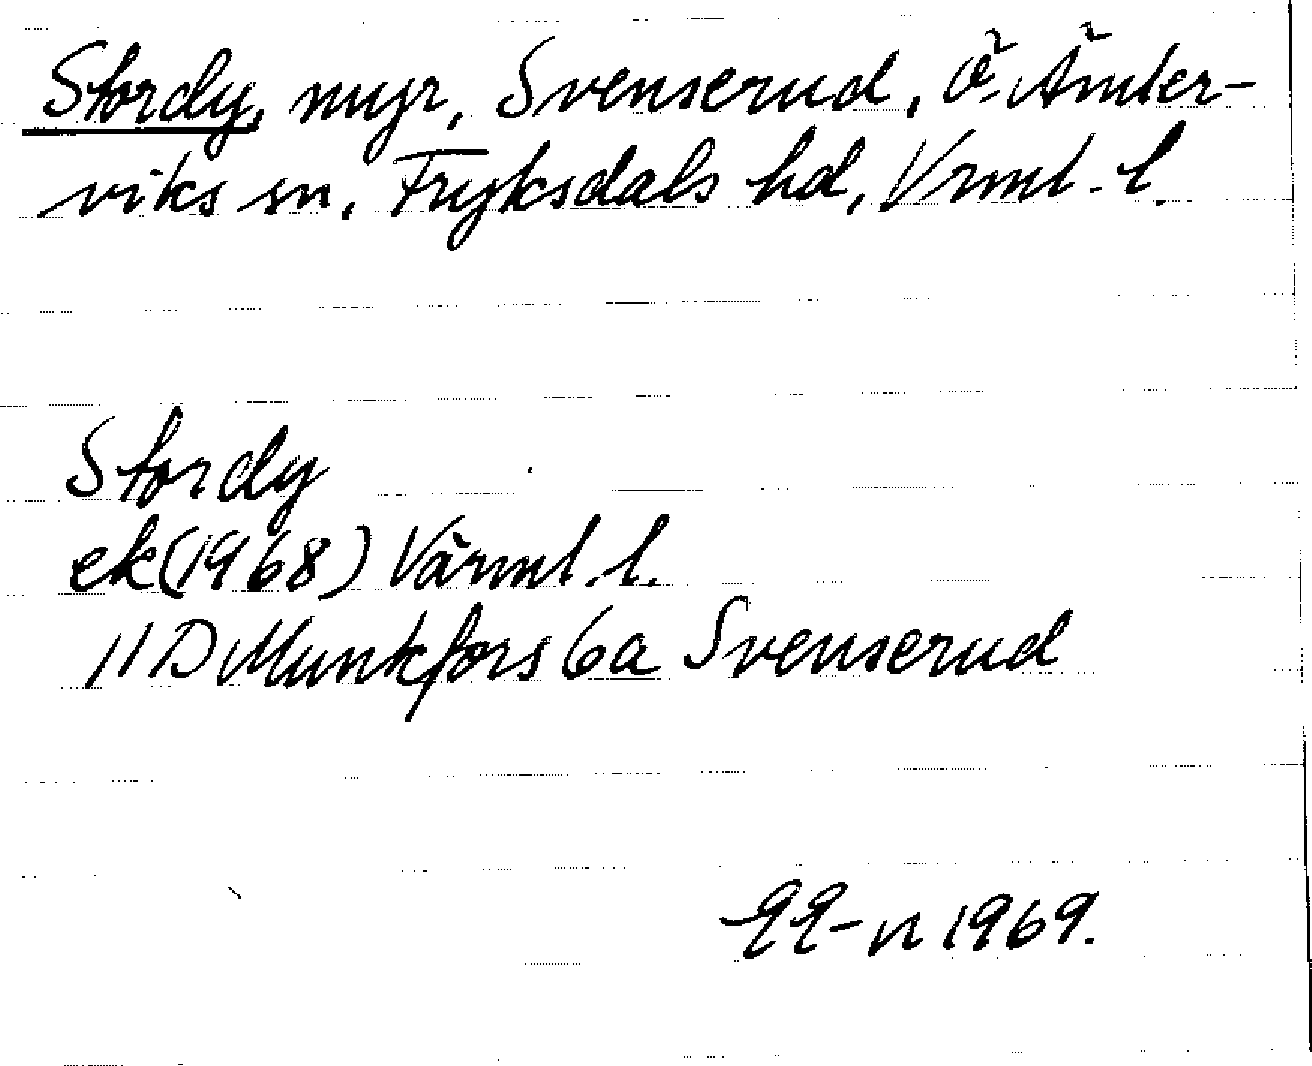 Stordy, myr, Svenserud, Ö. Ämter-
viks sn, Fryksdals hd, Vrml. l.
Stordy
ek (1968) Värml. l.
11 D Munkfors 6a Svenserud
1969.